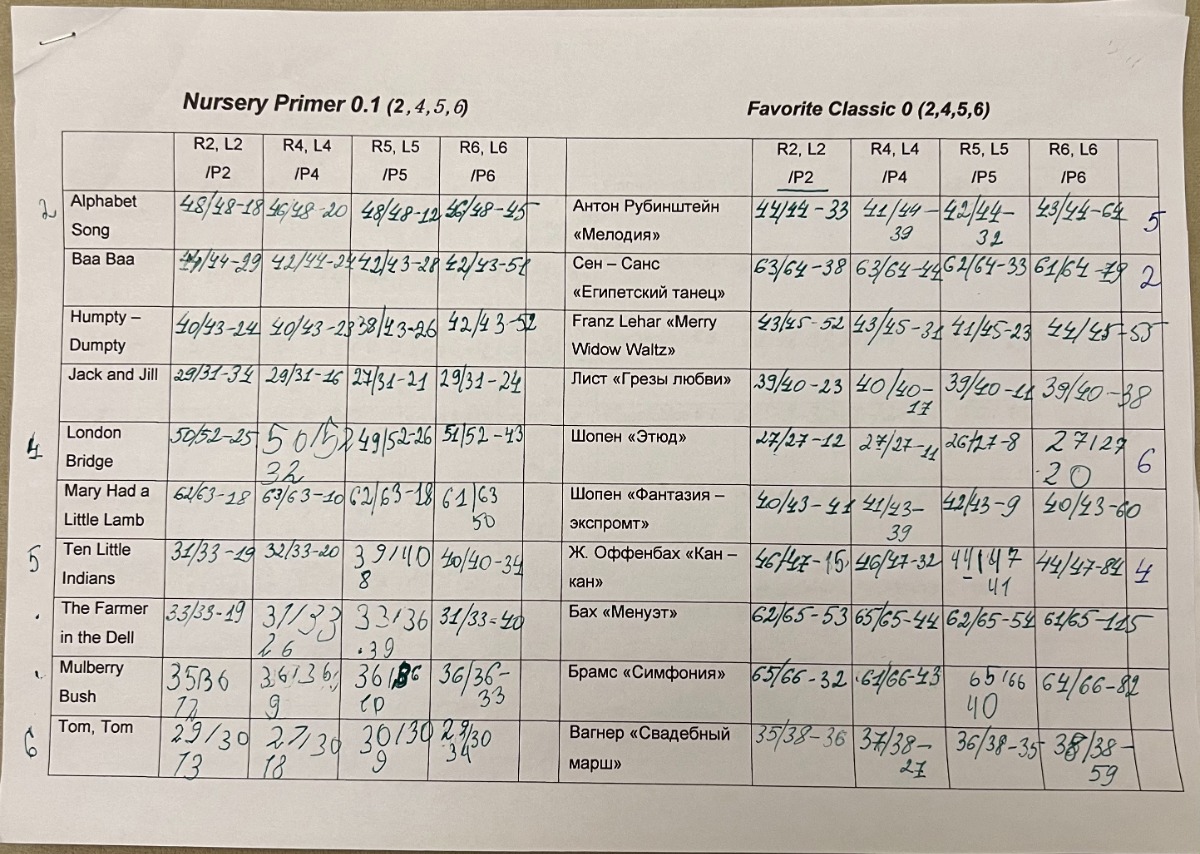 Nursery Primer 0.1 (2,4,5,6)
R2, L2 /P2 R4, L4 /P4 R5, L5 /P5 R6, L6 /P6
2 Alphabet Song 48/48-18 46/48-20 48/48-12 46/48-45
Baa Baa 44/44-29 42/44-24 42/43-28 42/43-51
Humpty – Dumpty 40/43-24 40/43-23 38/43-26 42/43-52
Jack and Jill 29/31-34 29/31-16 27/31-21 29/31-24
4 London Bridge 50/52-25 50/52 32 49/52-26 51/52-43
Mary Had a Little Lamb 62/63-18 63/63-10 62/63-18 61/63 50
5 Ten Little Indians 31/33-19 32/33-20 39/40 8 40/40-34
The Farmer in the Dell 33/33-19 31/33 26 33/36 39 31/33-40
Mulberry Bush 35/36 12 36/36 9 36/36 10 36/36-33
6 Tom, Tom 29/30 13 27/30 18 30/30 9 29/30 34
Favorite Classic 0 (2,4,5,6)
R2, L2 /P2 R4, L4 /P4 R5, L5 /P5 R6, L6 /P6
Антон Рубинштейн «Мелодия» 44/44-33 41/44-39 42/44-32 43/44-64 5
Сен – Санс «Египетский танец» 63/64-38 63/64-44 62/64-33 61/64-79 2
Franz Lehar «Merry Widow Waltz» 43/45-52 43/45-31 41/45-23 44/45-55
Лист «Грезы любви» 39/40-23 40/40-17 39/40-11 39/40-38
Шопен «Этюд» 27/27-12 27/27-11 26/27-8 27/27 20 6
Шопен «Фантазия – экспромт» 40/43-41 41/43-39 42/43-9 40/43-60
Ж. Оффенбах «Кан – кан» 46/47-15 46/47-32 44/47-41 44/47-84 4
Бах «Менуэт» 62/65-53 65/65-44 62/65-54 61/65-115
Брамс «Симфония» 65/66-32 61/66-43 65/66 40 64/66-82
Вагнер «Свадебный марш» 35/38-36 37/38-27 36/38-35 38/38-59